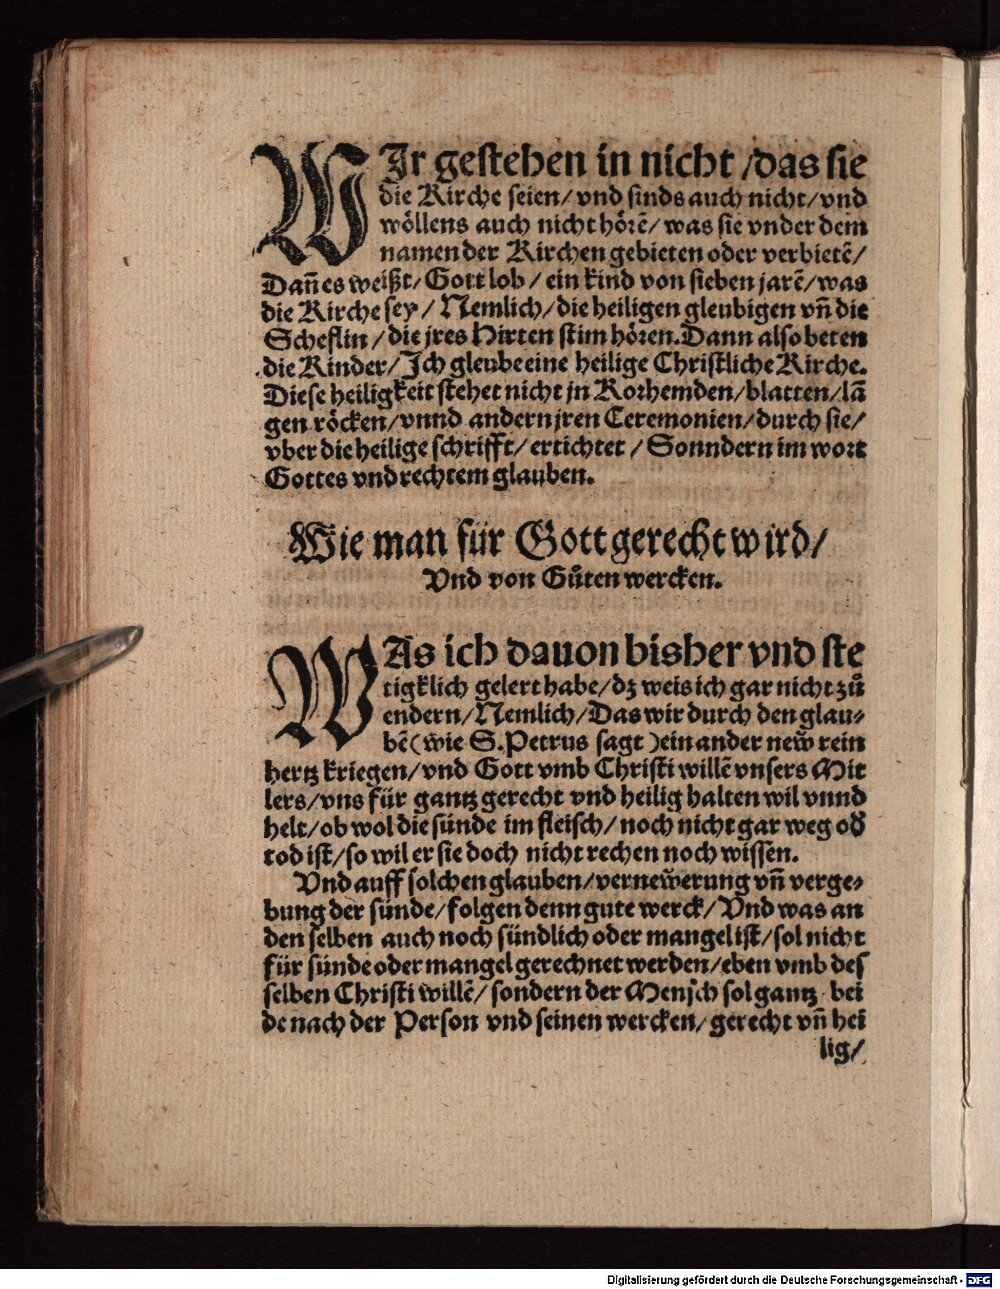 WIr gestehen in nicht /das sie
die Kirche seien/ vnd sinds auch nicht/ vnd
wöllens auch nicht hörẽ/ was sie vnder dem
namen der Kirchen gebieten oder verbietẽ/
Dañ es weißt/ Gott lob/ ein kind von sieben jarẽ/ was
die Kirche sey/ Nemlich/ die heiligen gleubigen vñ die
Scheflin/ die jres Hirten stim hören. Dann also beten
die Kinder/ Ich gleube eine heilige Christliche Kirche.
Diese heiligkeit stehet nicht jn Korhemden/ blatten/ lã
gen röcken/ vnnd andern jren Ceremonien/ durch sie/
vber die heilige schrifft/ ertichtet/ Sonndern im wort
Gottes vnd rechtem glauben.
Wie man für Gott gerecht wird/
Vnd von Gůten wercken.
WAs ich dauon bisher vnd ste
tigklich gelert habe/ dz weis ich gar nicht zů
endern/ Nemlich/ Das wir durch den glau⸗
bẽ (wie S. Petrus sagt) ein ander neẘ rein
hertz kriegen/ vnd Gott vmb Christi willẽ vnsers Mit
lers/ vns für gantz gerecht vnd heilig halten wil vnnd
helt/ ob wol die sünde im fleisch/ noch nicht gar weg od̕
tod ist/ so wil er sie doch nicht rechen noch wissen.
Vnd auff solchen glauben/ verneẘerung vñ verge⸗
bung der sünde/ folgen denn gute werck/ Vnd was an
den selben auch noch sündlich oder mangel ist/ sol nicht
für sünde oder mangel gerechnet werden/ eben vmb des
selben Christi willẽ/ sondern der Mensch sol gantz bei
de nach der Person vnd seinen wercken/ gerecht vñ hei
lig/
Digitalisierung gefördert durch die Deutsche Forschungsgemeinschaft - DFG